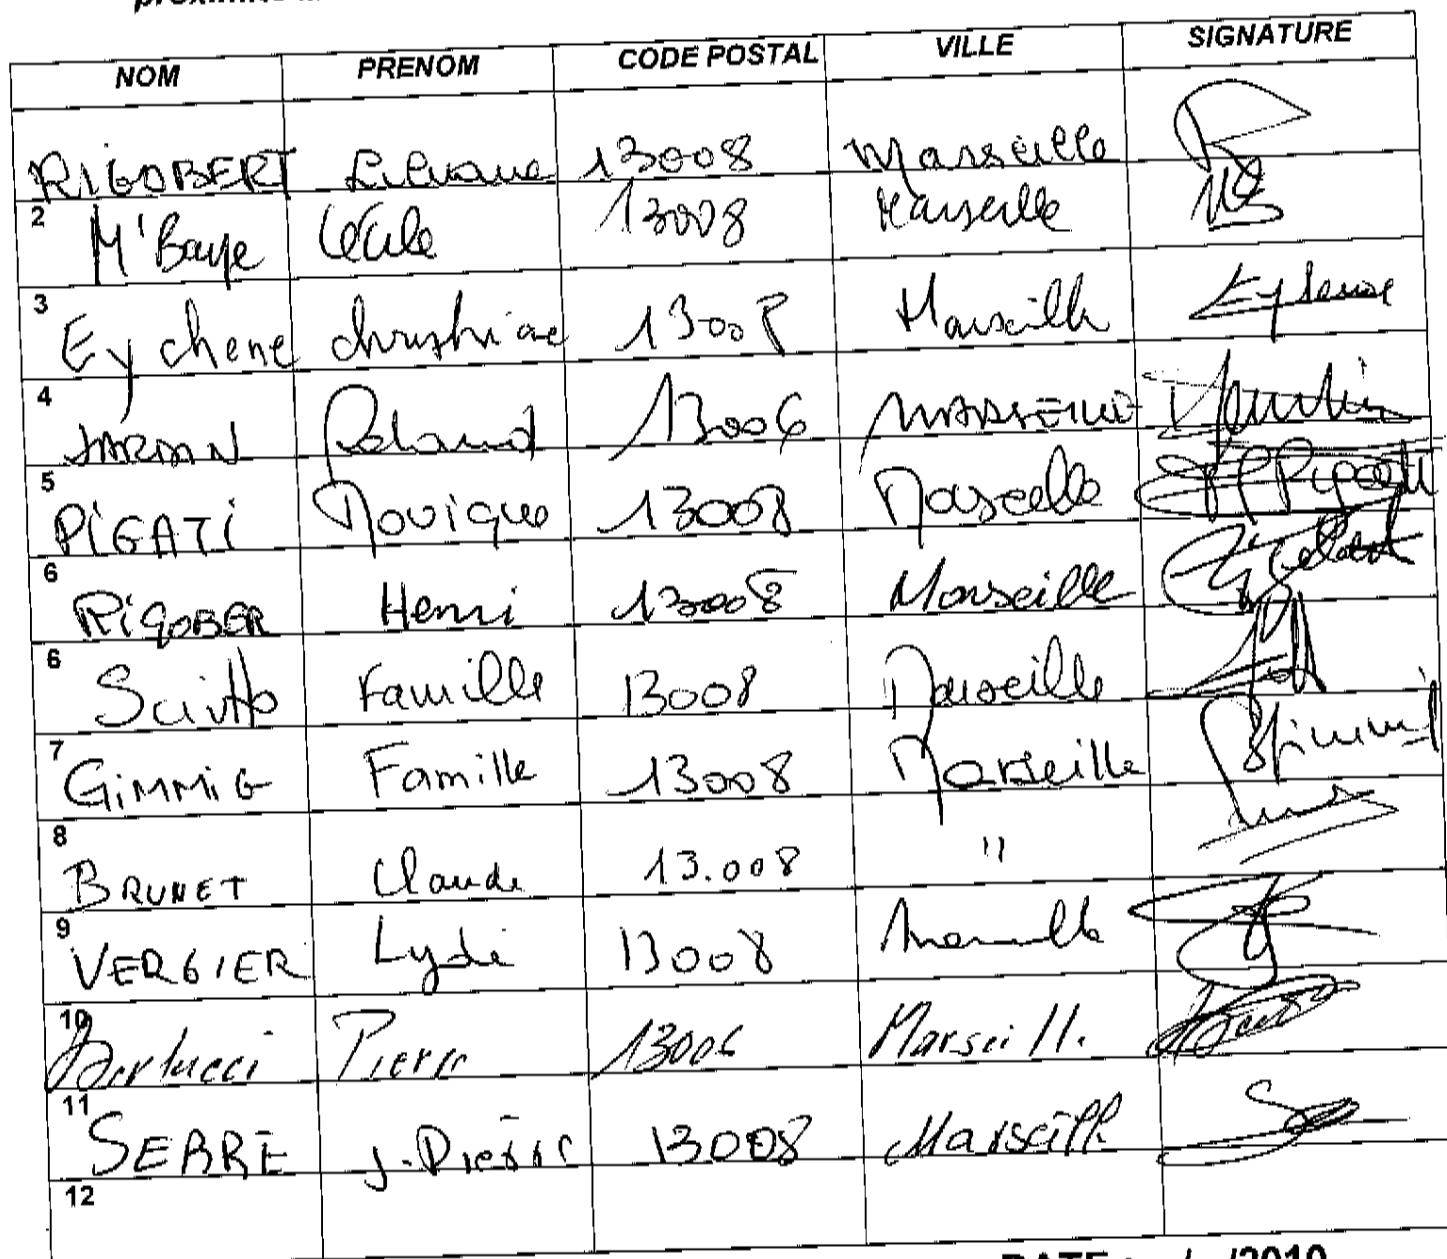 NOM PRENOM CODE POSTAL VILLE SIGNATURE
RIGOBERT Liliane 13008 Marseille
2 M'Baye Cécile 13008 Marseille
3 Eychene christiane 13008 Marseille
4 Roland 13006 MARSEILLE
5 PIGATI Monique 13008 Marseille
6 RIGOBER Henri 13008 Marseille
6 Scivtto Famille 13008 Marseille
7 GIMMIG Famille 13008 Marseille
8 BRUNET Claude 13.008 "
9 VERGIER Lydie 13008 Marseille
10 Pierre 13006 Marseill.
11 SERRE J-Pierre 13008 Marseille
12